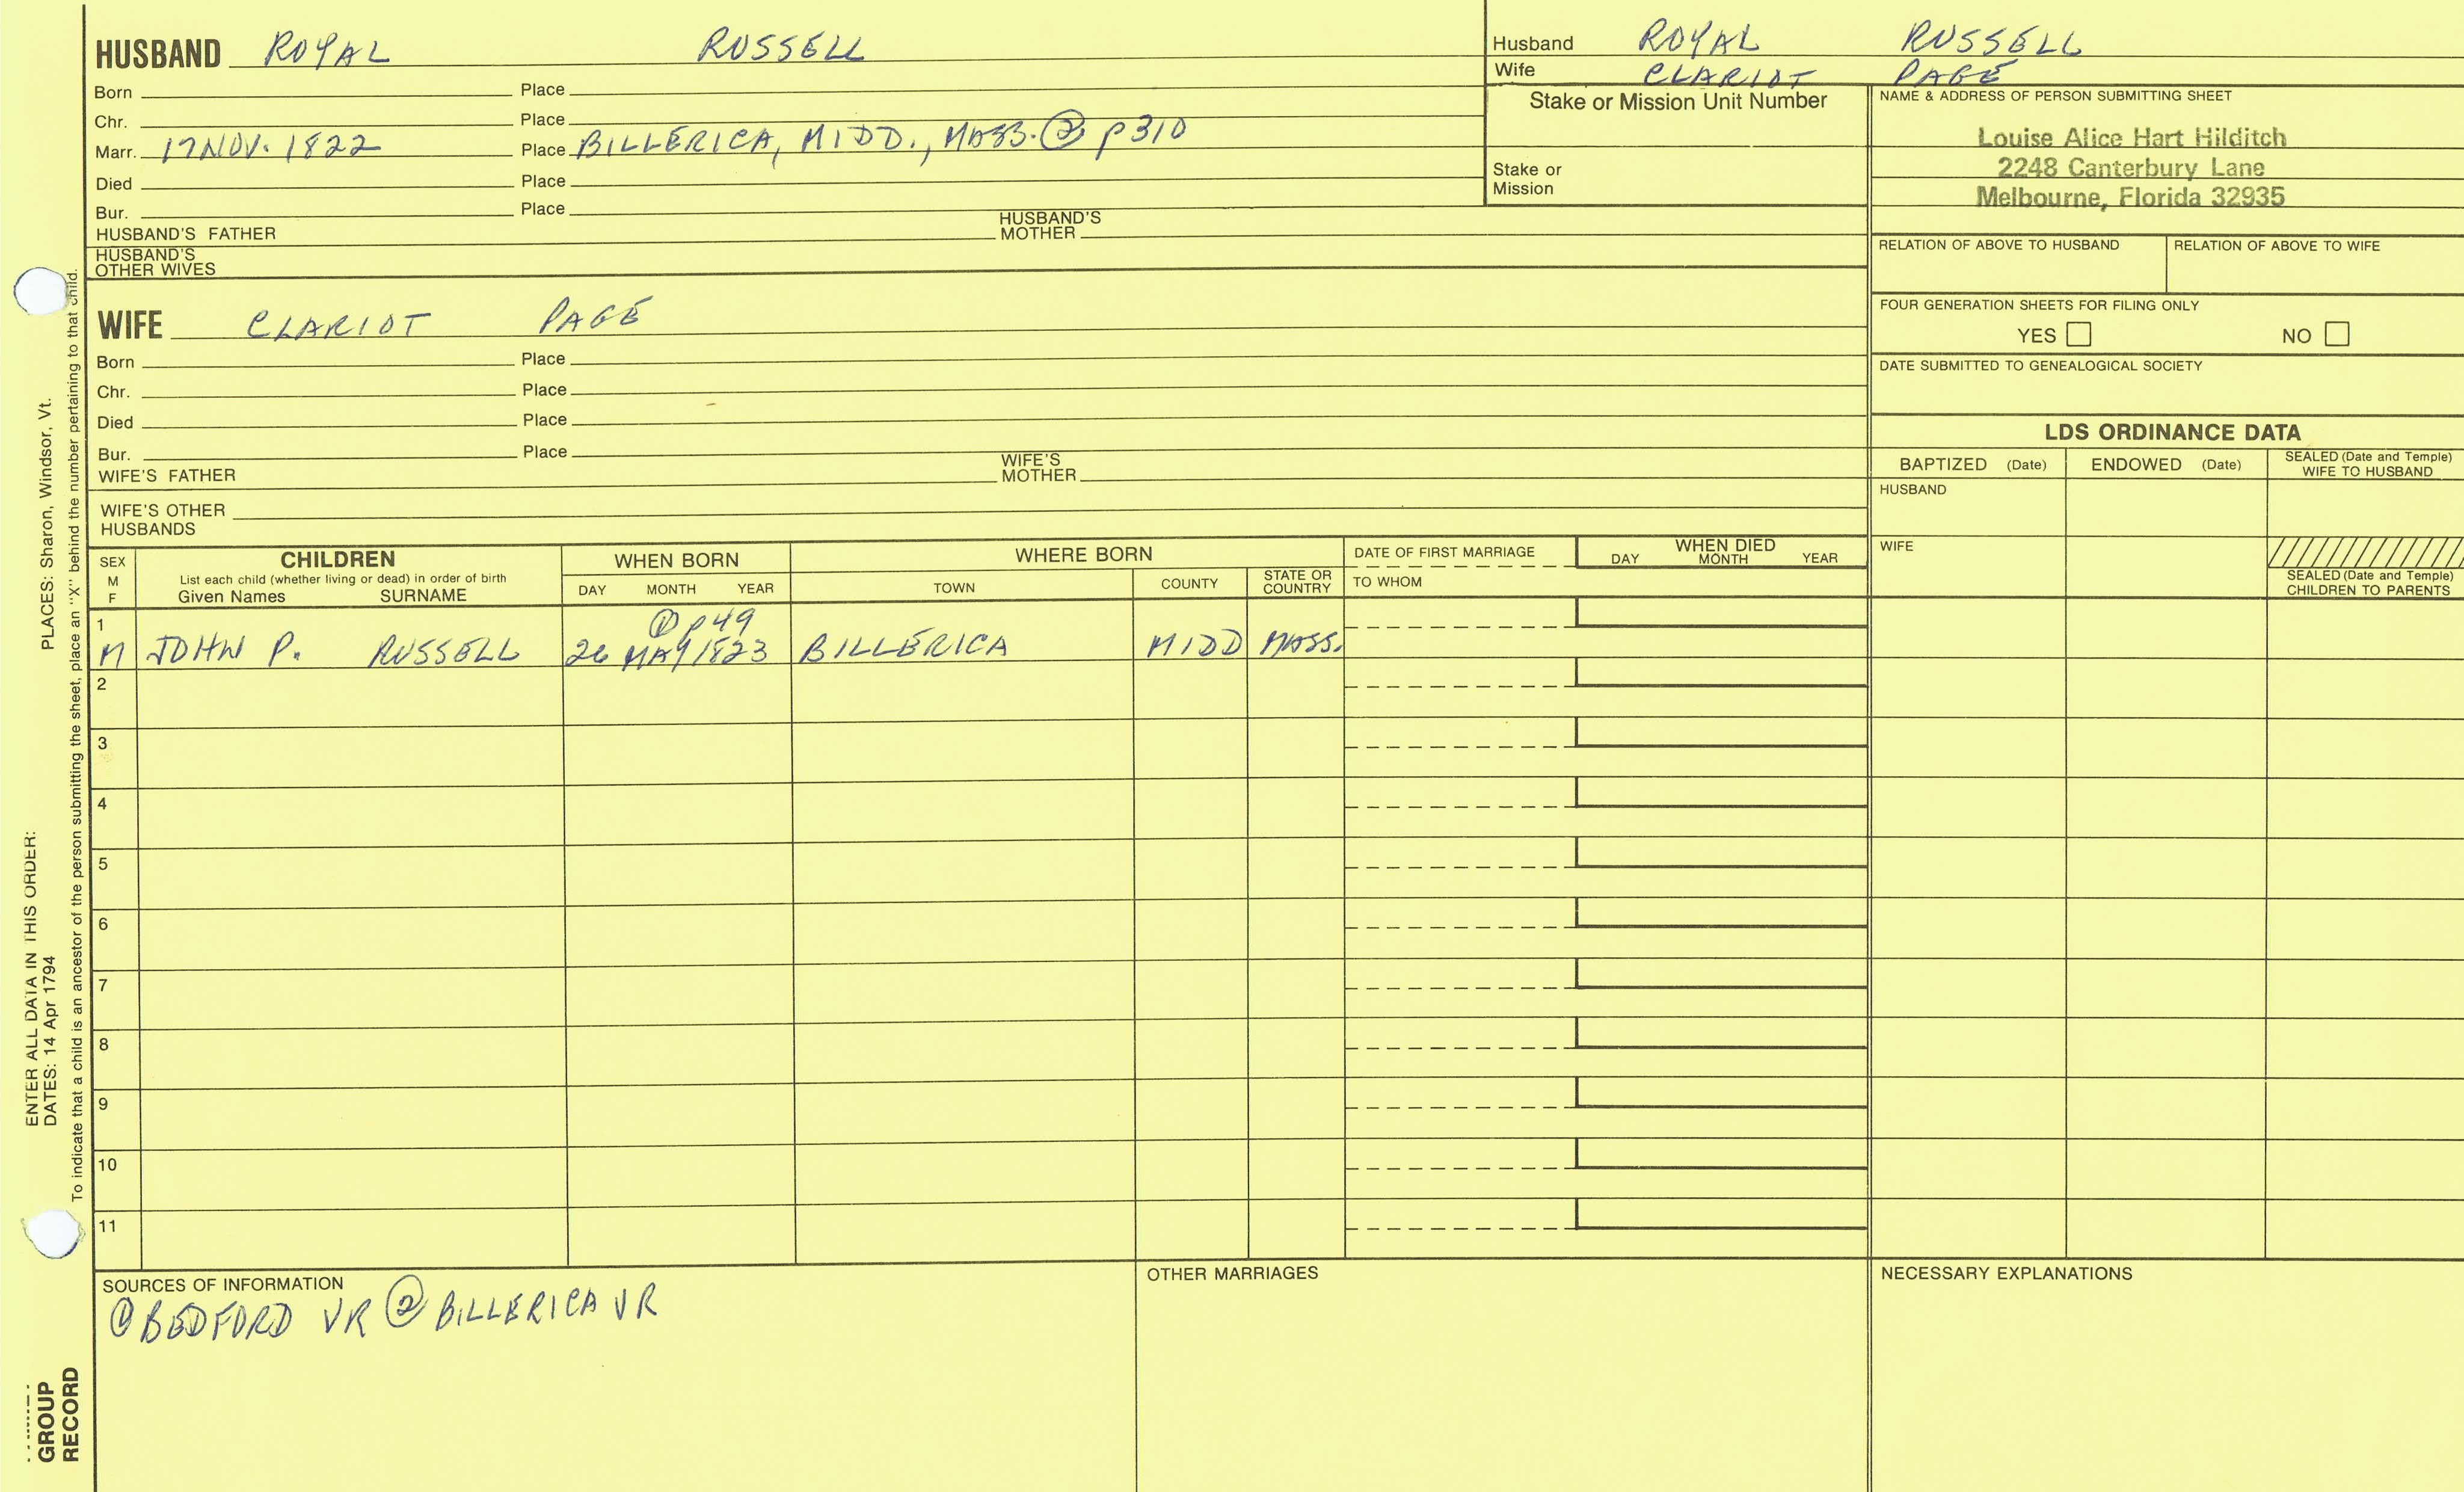 HUSBAND ROYAL RUSSELL
Born Place
Chr. Place
Marr. 17 NOV. 1822 Place BILLERICA, MIDD., MASS. ② p310
Died Place
Bur. Place
HUSBAND'S FATHER HUSBAND'S MOTHER
HUSBAND'S OTHER WIVES
Husband ROYAL RUSSELL
Wife CLARIOT PAGE
Stake or Mission Unit Number
Stake or Mission
NAME & ADDRESS OF PERSON SUBMITTING SHEET
Louise Alice Hart Hilditch
2248 Canterbury Lane
Melbourne, Florida 32935
RELATION OF ABOVE TO HUSBAND RELATION OF ABOVE TO WIFE
FOUR GENERATION SHEETS FOR FILING ONLY
YES NO
DATE SUBMITTED TO GENEALOGICAL SOCIETY
WIFE CLARIOT PAGE
Born Place
Chr. Place
Died Place
Bur. Place
WIFE'S FATHER WIFE'S MOTHER
WIFE'S OTHER HUSBANDS
LDS ORDINANCE DATA
BAPTIZED (Date) ENDOWED (Date) SEALED (Date and Temple) WIFE TO HUSBAND
HUSBAND
WIFE
SEALED (Date and Temple) CHILDREN TO PARENTS
SEX M F
CHILDREN
List each child (whether living or dead) in order of birth
Given Names SURNAME
WHEN BORN
DAY MONTH YEAR
WHERE BORN
TOWN COUNTY STATE OR COUNTRY
DATE OF FIRST MARRIAGE
TO WHOM
WHEN DIED
DAY MONTH YEAR
1 ① p49
M JOHN P. RUSSELL 26 MAY 1823 BILLERICA MIDD MASS.
2
3
4
5
6
7
8
9
10
11
SOURCES OF INFORMATION
① BEDFORD VR ② BILLERICA VR
OTHER MARRIAGES
NECESSARY EXPLANATIONS
ENTER ALL DATA IN THIS ORDER:
DATES: 14 Apr 1794 PLACES: Sharon, Windsor, Vt.
To indicate that a child is an ancestor of the person submitting the sheet, place an "X" behind the number pertaining to that child.
GROUP
RECORD